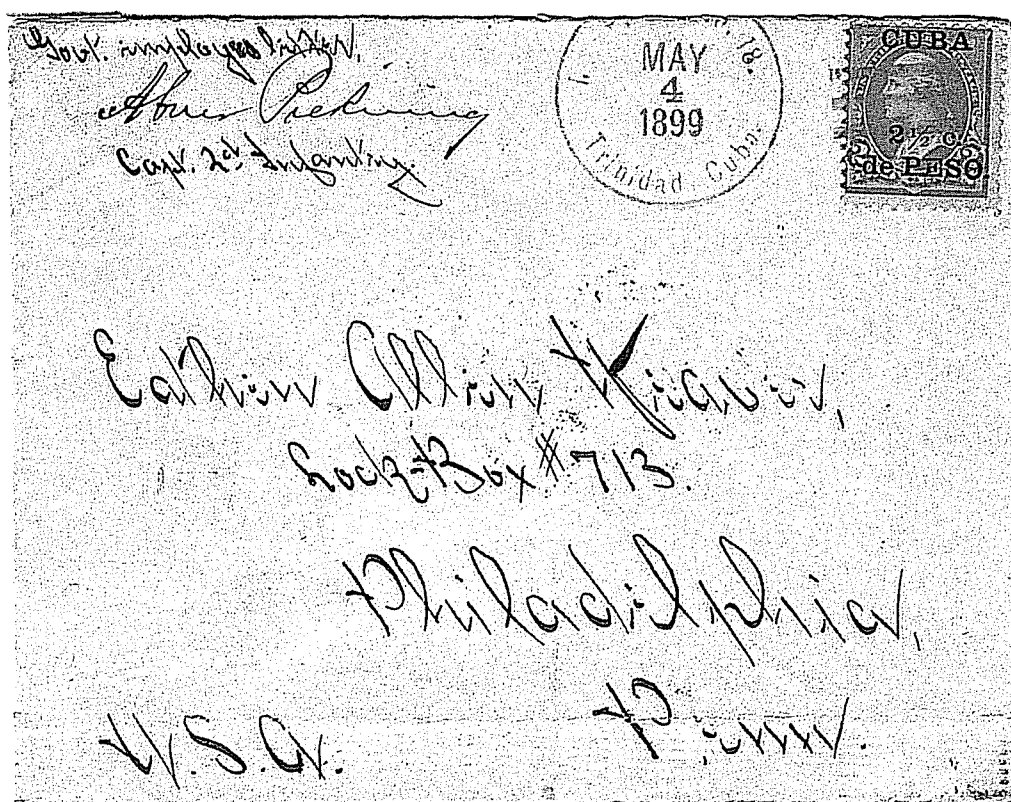 Govt. employes letter,
Abner Pickering
Capt. 2d Infantry.
MAY
4
1899
Trinidad, Cuba.
CUBA
2½ c.
de PESO
Allen
Lock-Box # 713.
Philadelphia,
Penn.
U.S.A.